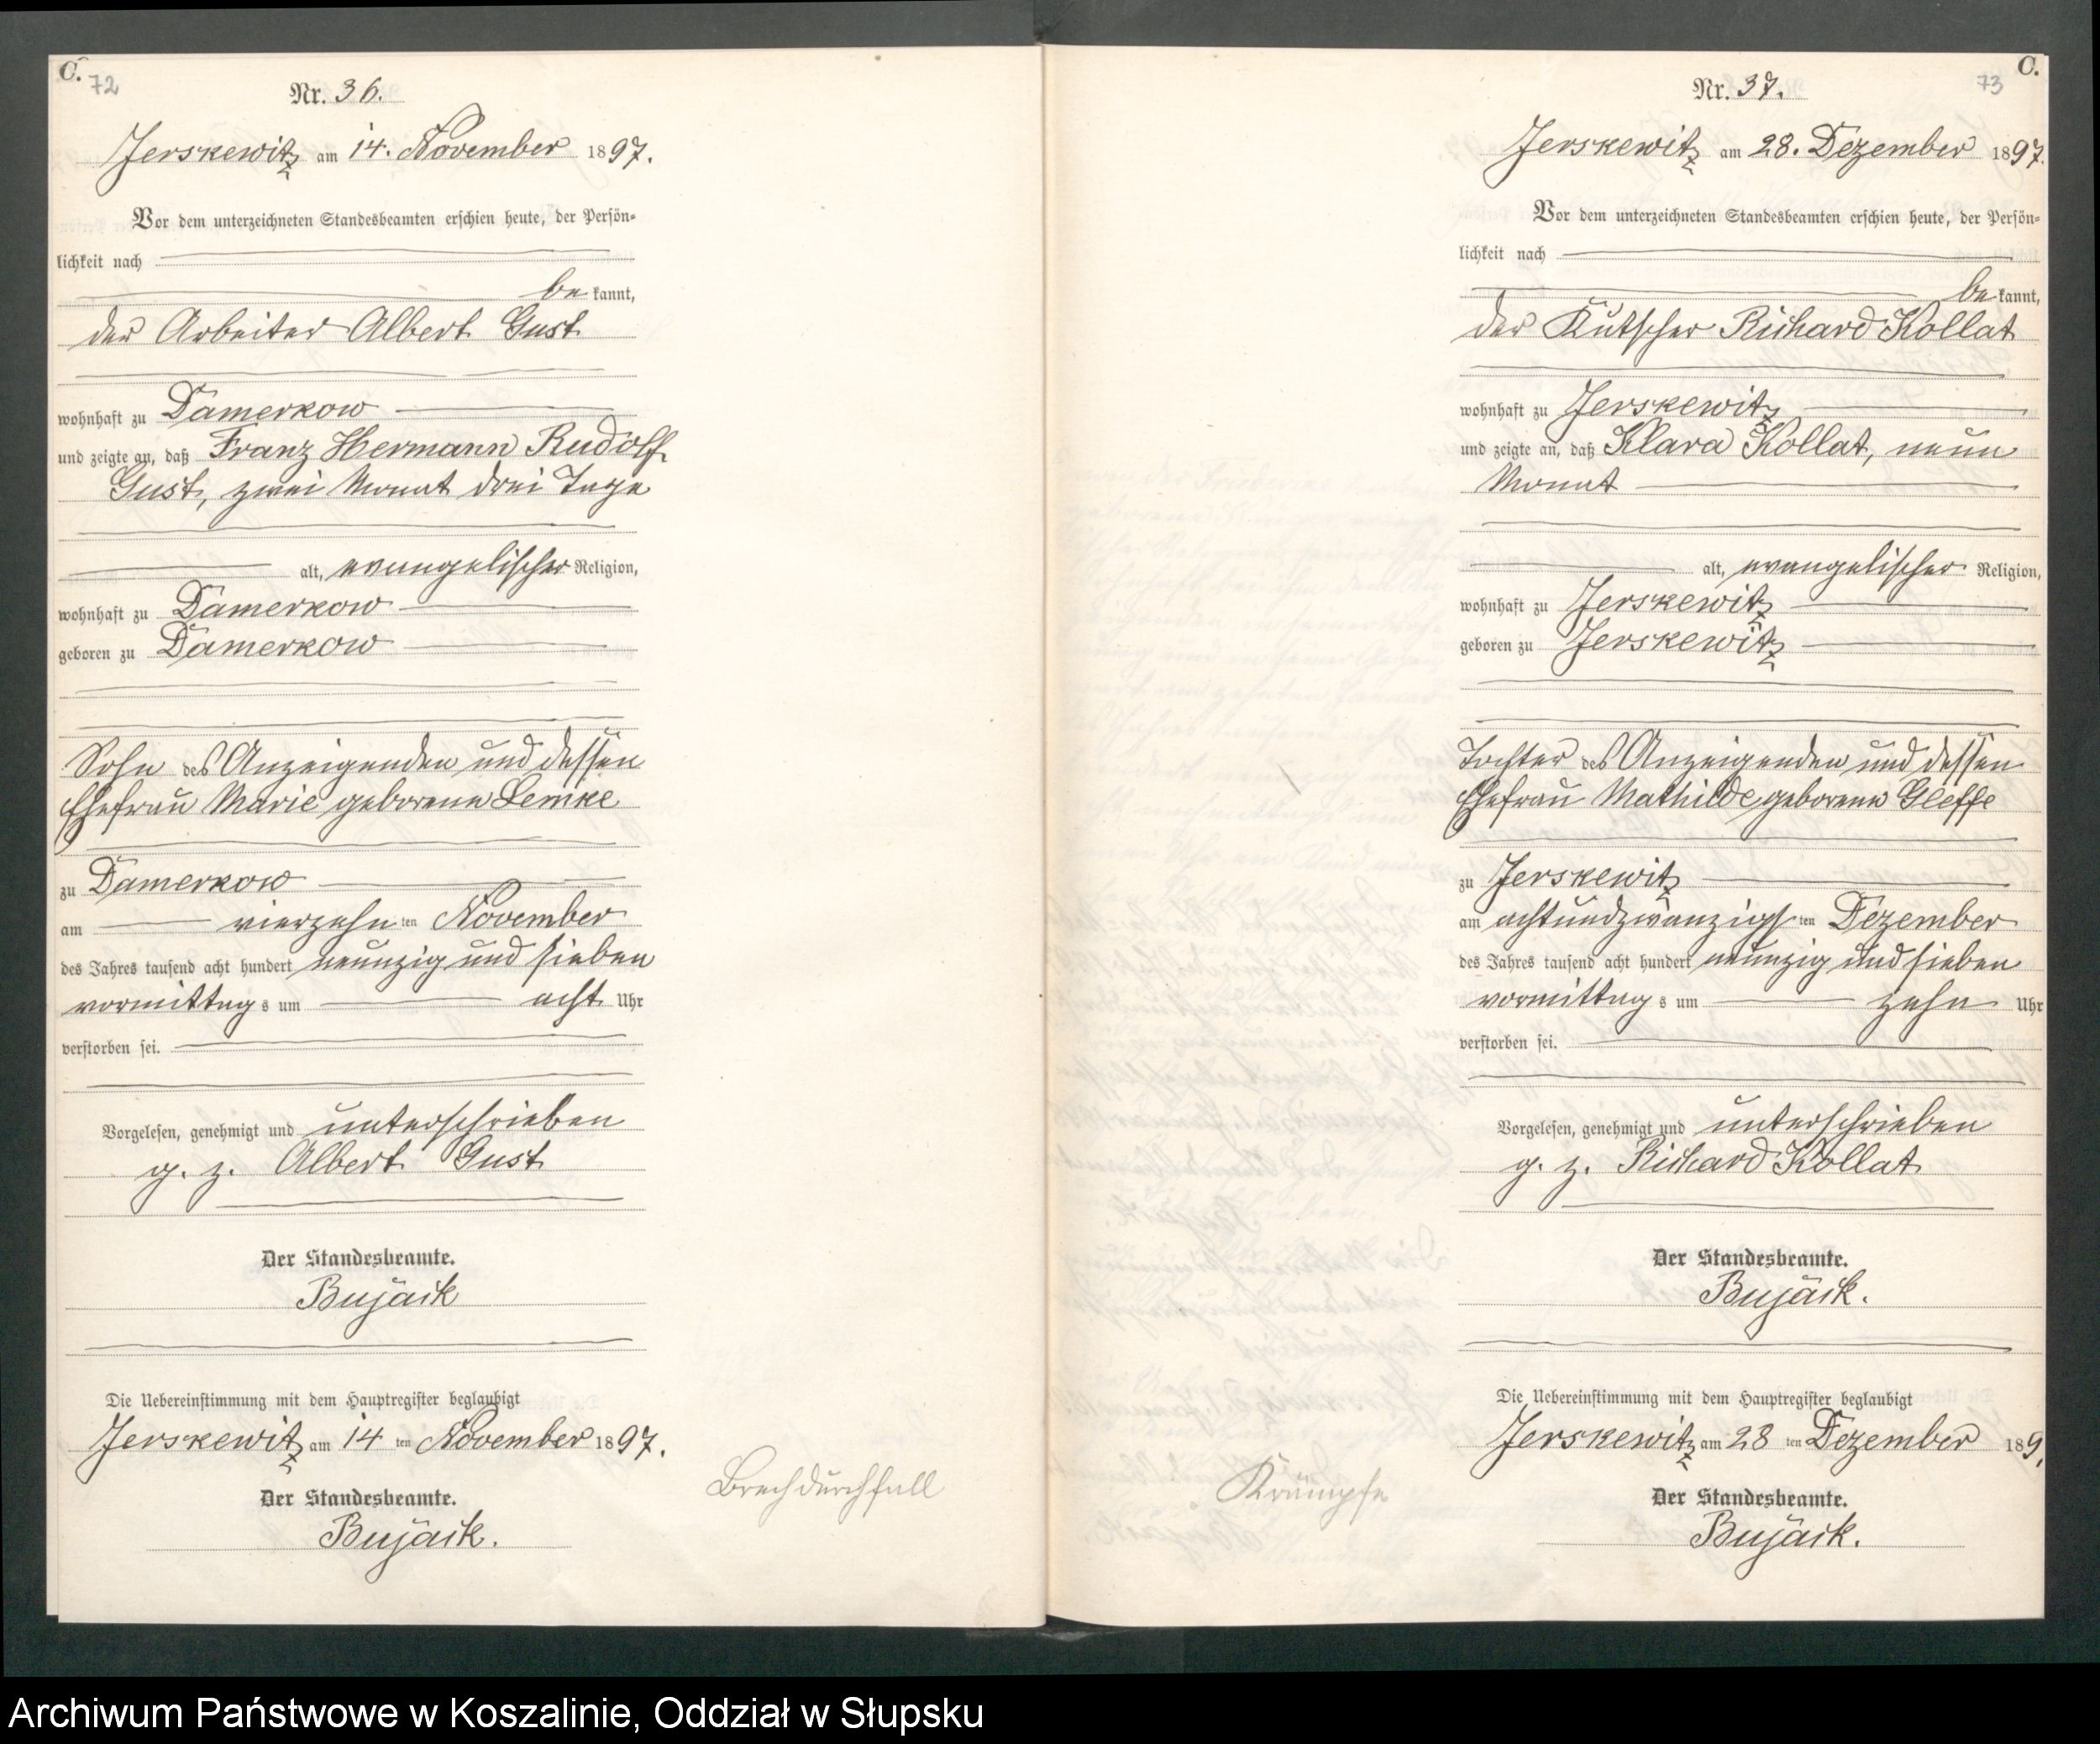 C.
72
Nr. 36.
Jerskewitz am 14. November 1897.
Vor dem unterzeichneten Standesbeamten erschien heute, der Persön=
lichkeit nach
be kannt,
der Arbeiter Albert Gust
wohnhaft zu Damerkow
und zeigte an, daß Franz Hermann Rudolf
Gust, zwei Monat drei Tage
alt, evangelischer Religion,
wohnhaft zu Damerkow
geboren zu Damerkow
Sohn des Anzeigenden und dessen
Ehefrau Marie geborene Lemke
zu Damerkow
am vierzehn ten November
des Jahres tausend acht hundert neunzig und sieben
vormittag s um acht Uhr
verstorben sei.
Vorgelesen, genehmigt und unterschrieben
g. z. Albert Gust
Der Standesbeamte.
Bujack
Die Uebereinstimmung mit dem Hauptregister beglaubigt
Jerskewitz am 14 ten November 1897.
Der Standesbeamte.
Bujack.
Brechdurchfall
C.
73
Nr. 37.
Jerskewitz am 28. Dezember 1897.
Vor dem unterzeichneten Standesbeamten erschien heute, der Persön=
lichkeit nach
be kannt,
der Kutscher Richard Kollat
wohnhaft zu Jerskewitz
und zeigte an, daß Klara Kollat, neun
Monat
alt, evangelischer Religion,
wohnhaft zu Jerskewitz
geboren zu Jerskewitz
Tochter des Anzeigenden und dessen
Ehefrau Mathilde geborene Gleffe
zu Jerskewitz
am achtundzwanzigs ten Dezember
des Jahres tausend acht hundert neunzig und sieben
vormittag s um zehn Uhr
verstorben sei.
Vorgelesen, genehmigt und unterschrieben
g. z. Richard Kollat
Der Standesbeamte.
Bujack.
Die Uebereinstimmung mit dem Hauptregister beglaubigt
Jerskewitz am 28 ten Dezember 189
Der Standesbeamte.
Bujack.
Krämpfe
Archiwum Państwowe w Koszalinie, Oddział w Słupsku